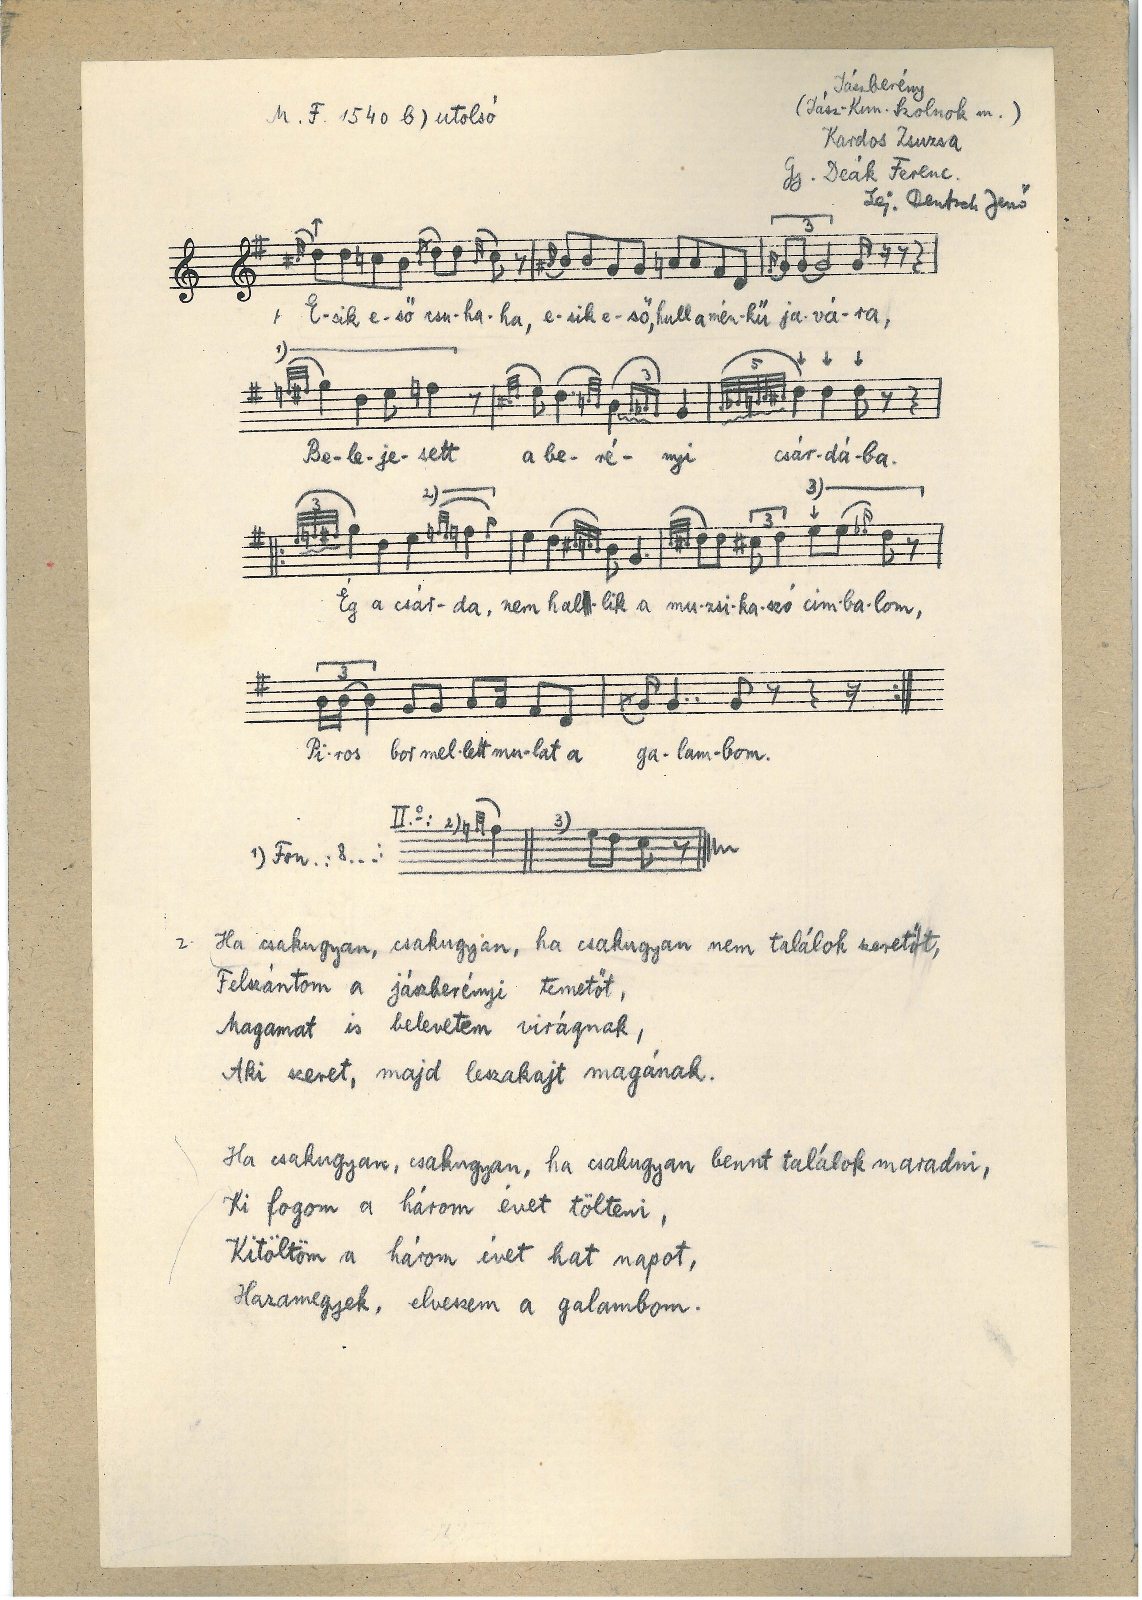 M. F. 1540 b) utolsó
Jászberény
(Jász-Kun-Szolnok m.)
Kardos Zsuzsa
Gy. Deák Ferenc.
Lej. Deutsch Jenő
3
1 E-sik e-ső zsu-ha-ha, e-sik e-ső, hull a mén-kű ja-vá-ra,
1) 3 5
Be-le-je-sett a be-ré-nyi csár-dá-ba.
3 2) 3 3)
Ég a csár-da, nem hal-lik a mu-zsi-ka-szó cim-ba-lom,
3
Pi-ros bor mel-lett mu-lat a ga-lam-bom.
II.o: 2) 3)
1) Fon.: 8...:
2. Ha csakugyan, csakugyan, ha csakugyan nem találok szeretőt,
Felszántom a jászberényi temetőt,
Magamat is belevetem virágnak,
Aki szeret, majd leszakajt magának.
Ha csakugyan, csakugyan, ha csakugyan bennt találok maradni,
Ki fogom a három évet tölteni,
Kitöltöm a három évet hat napot,
Hazamegyek, elveszem a galambom.